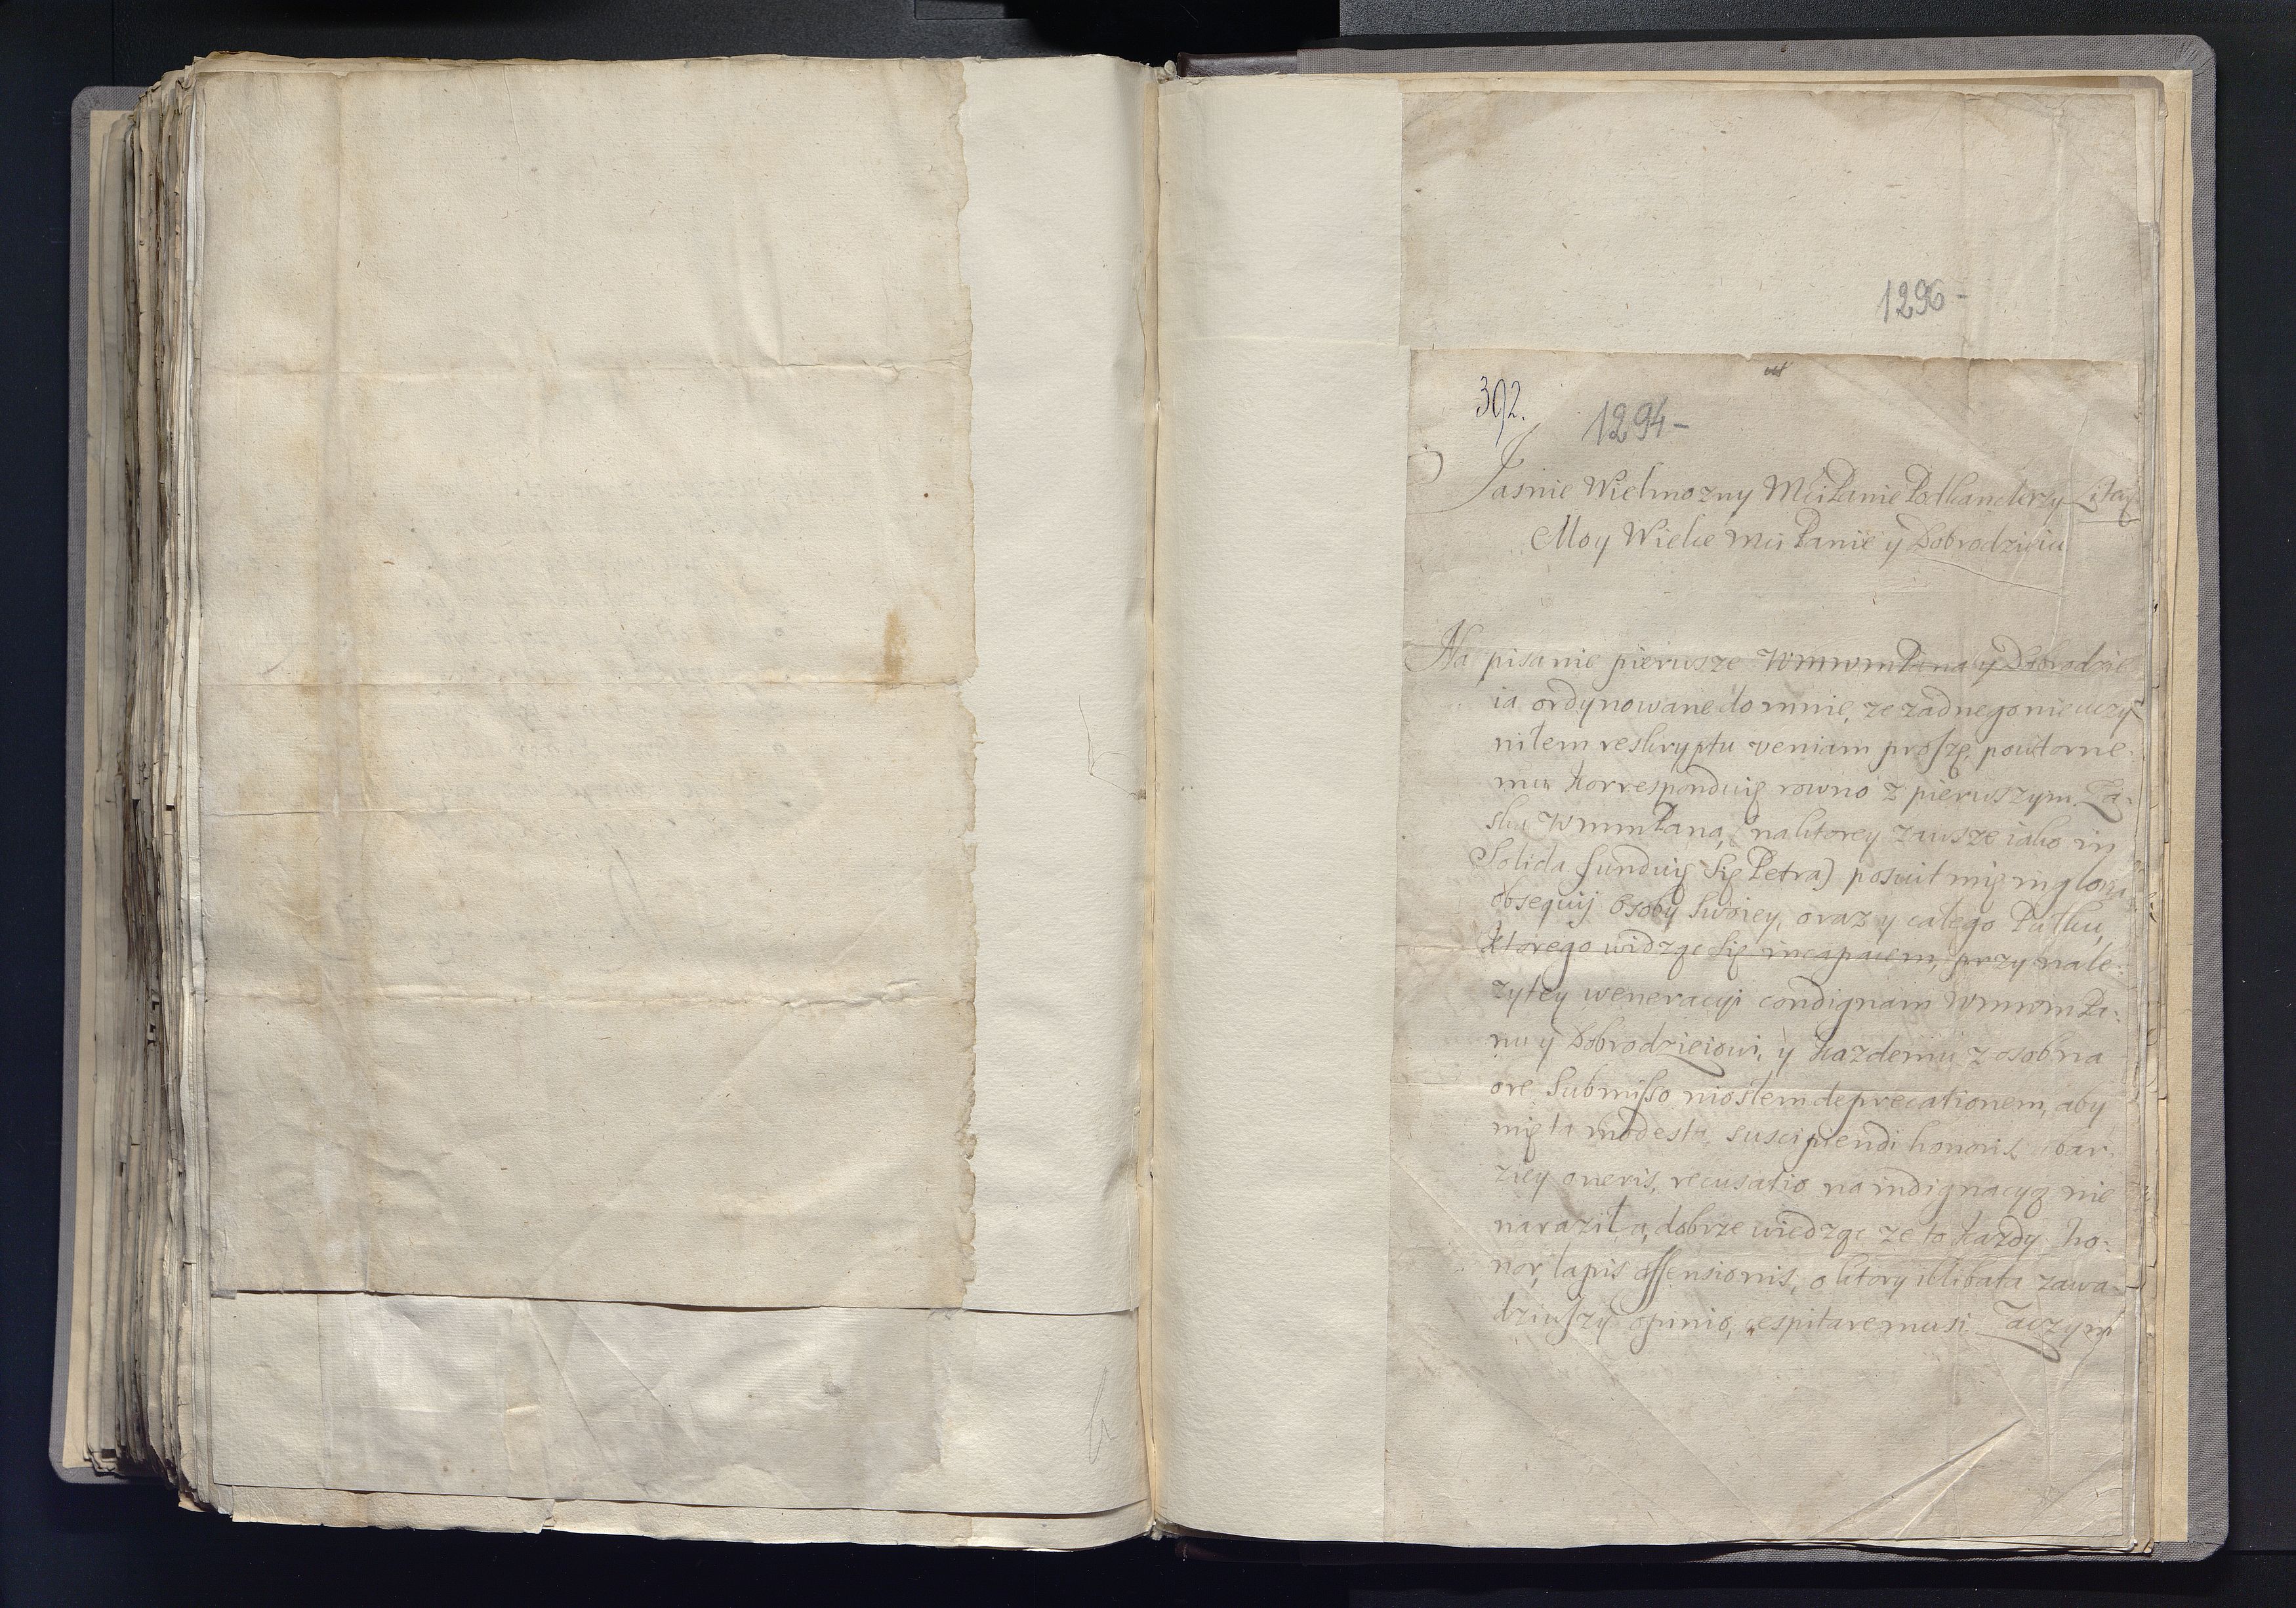 1296-
392.
1294-
Jasnie Wielmozny Mci Panie Podkanclerzy Litaq
Moy Wielce Mci Panie y Dobrodzieiu
Na pisanie pierwsze WmwmPana y Dobrodzie
ia ordynowane do mnie, ze zadnego nie uczy
nilem reskryptu veniam proszę, powtorne
mu korresponduię rowno z pierwszym La-
ska WmmPana, (na ktorey zawsze iako in
Solida funduię Się Petra) posuit mię in gloria
obsequij Osoby Swoiey, oraz y całego Pułku,
Ktorego widząc Się incapacem, przy nale-
zytey weneracyi condignam WmwmPa-
nu y Dobrodzieiowi, y kazdemu z osobna
ore Submisso niosłem deprecationem, aby
mię ta modesta, suscipiendi honoris a bar
ziey oneris, recusatio na indignacyą nie
naraziła, dobrze wiedząc ze to kazdy ho-
nor, lapis offensionis, o ktory illibata zawa-
dziwszy opinio, cespitare musi. Zaczym